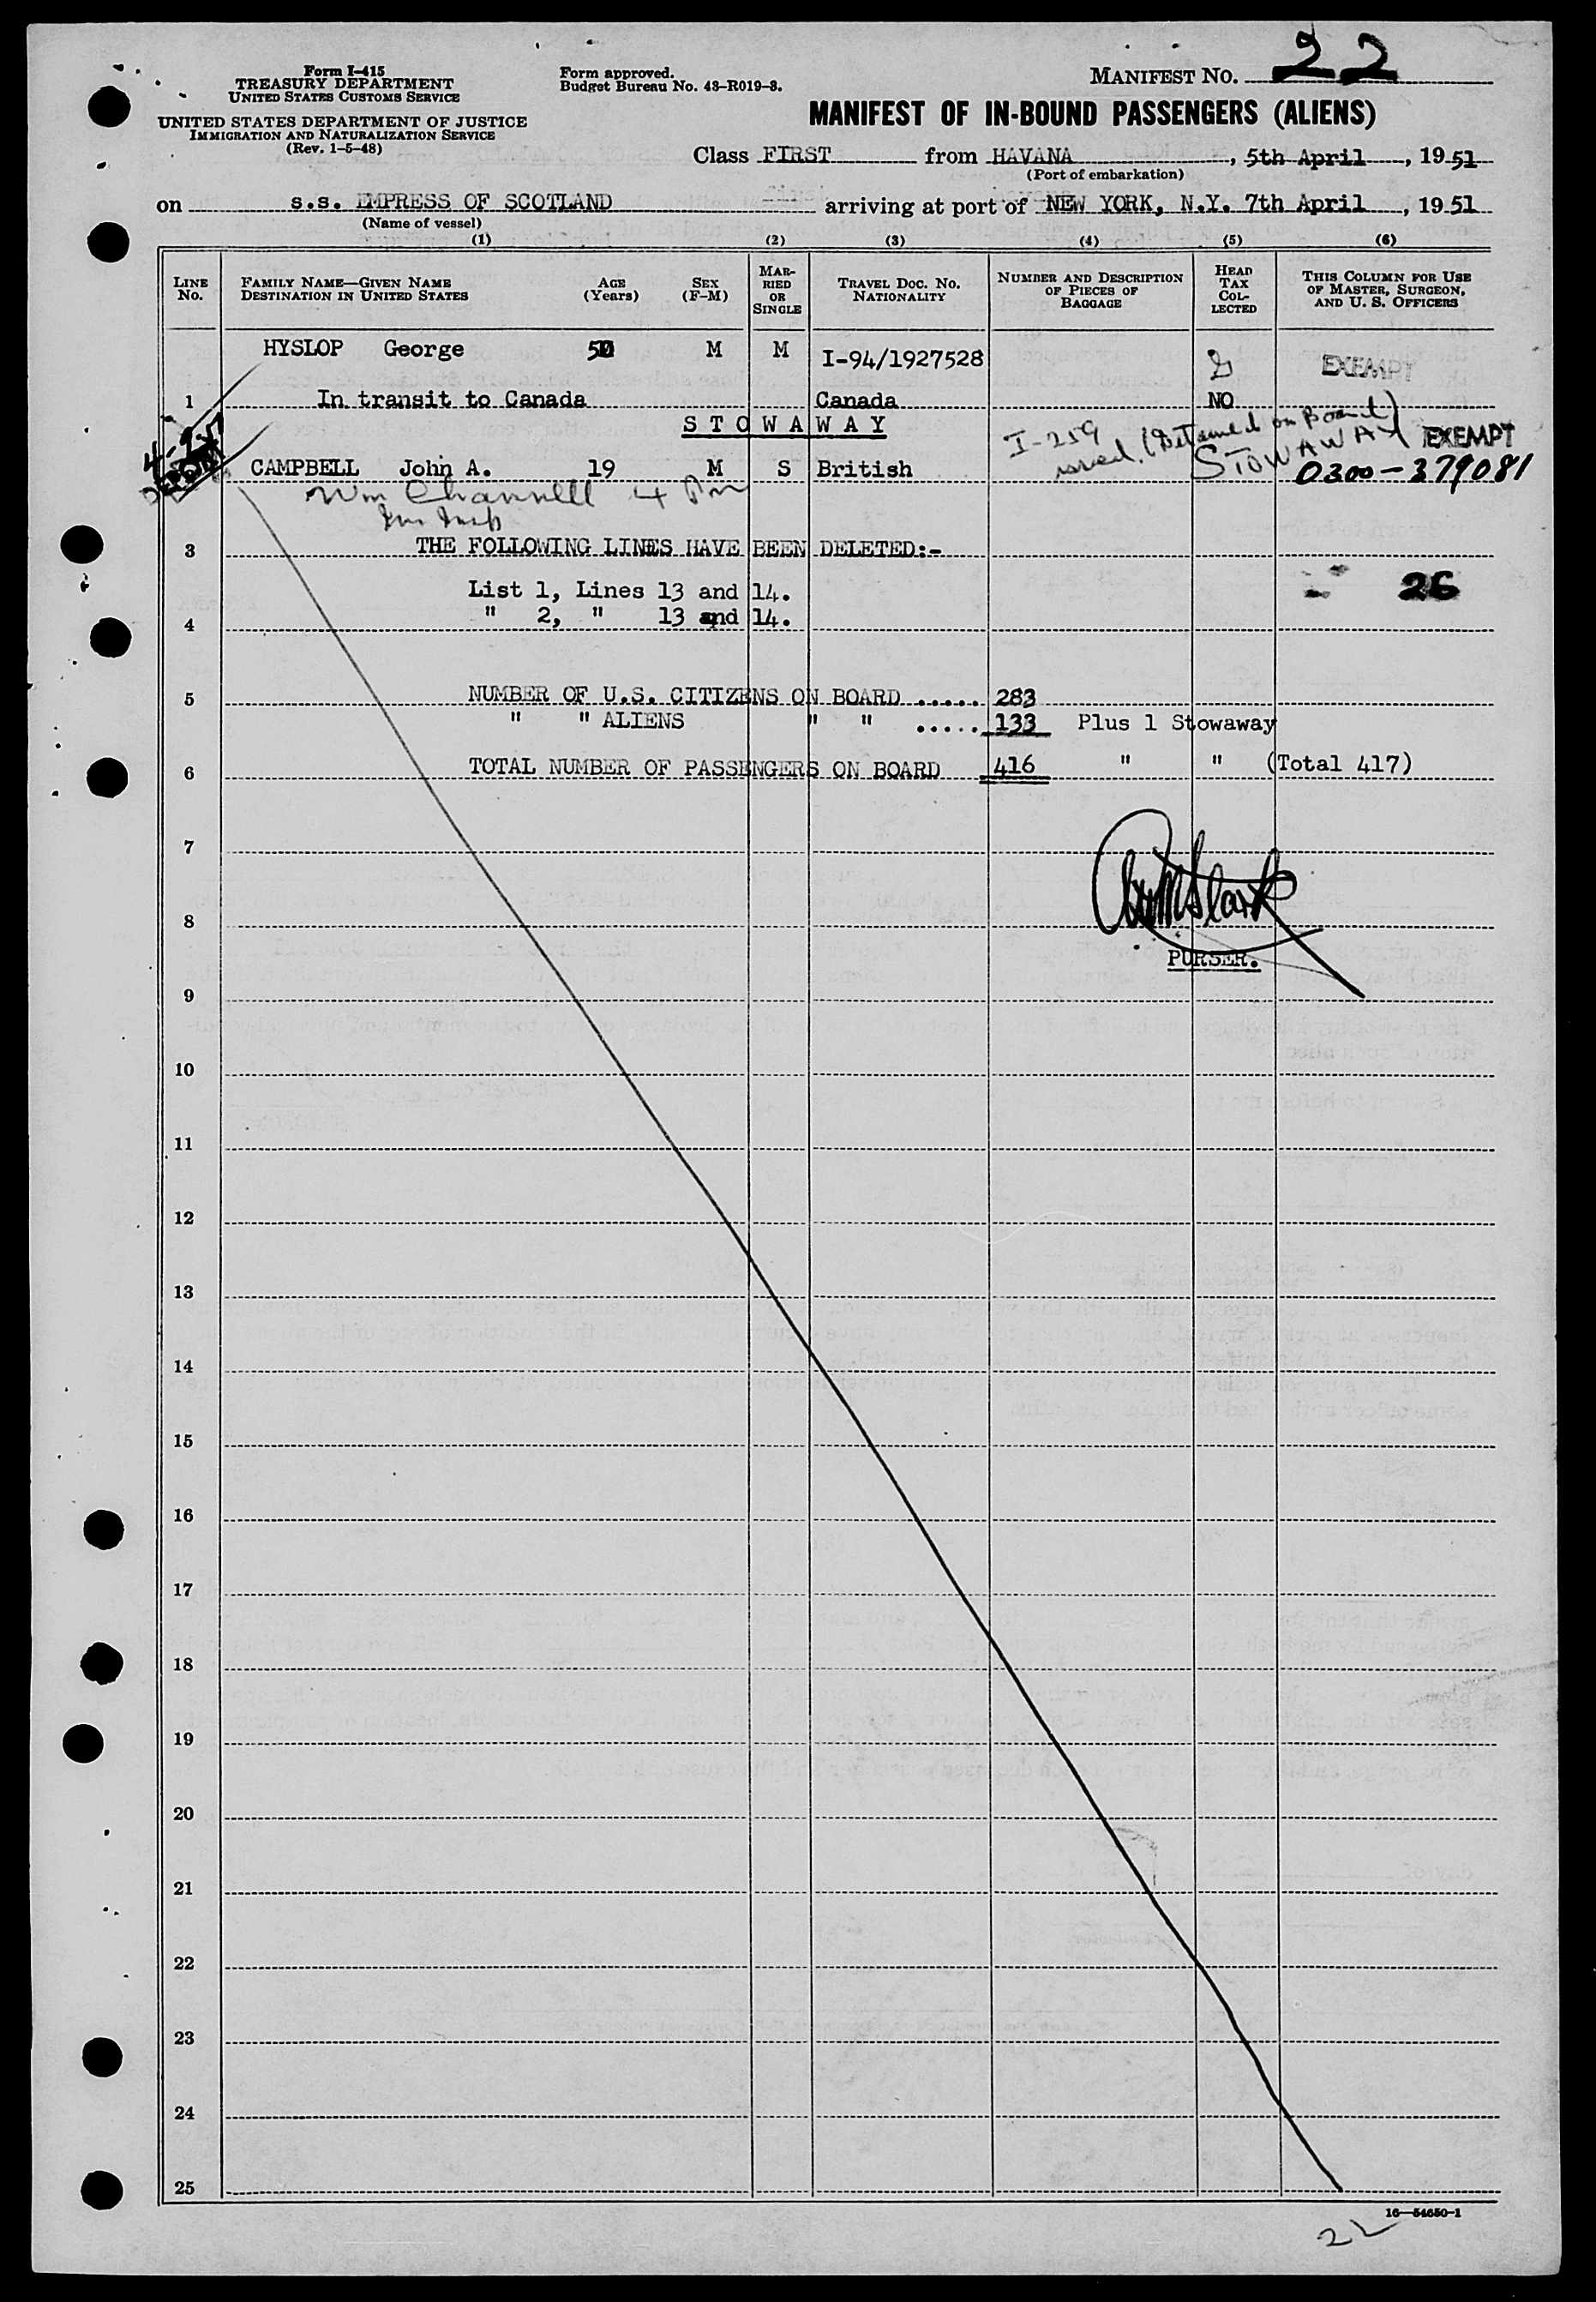 Form I-415
TREASURY DEPARTMENT
UNITED STATES CUSTOMS SERVICE
UNITED STATES DEPARTMENT OF JUSTICE
IMMIGRATION AND NATURALIZATION SERVICE
(Rev. 1-5-48)
Form approved.
Budget Bureau No. 43-R019-3.
MANIFEST NO. 22
MANIFEST OF IN-BOUND PASSENGERS (ALIENS)
Class FIRST from HAVANA, 5th April, 1951
(Port of embarkation)
on s.s. EMPRESS OF SCOTLAND arriving at port of NEW YORK, N.Y. 7th April, 1951
(Name of vessel)
(1) (2) (3) (4) (5) (6)
LINE No. FAMILY NAME—GIVEN NAME DESTINATION IN UNITED STATES AGE (Years) SEX (F-M) MARRIED OR SINGLE TRAVEL DOC. NO. NATIONALITY NUMBER AND DESCRIPTION OF PIECES OF BAGGAGE HEAD TAX COLLECTED THIS COLUMN FOR USE OF MASTER, SURGEON, AND U. S. OFFICERS
HYSLOP George M M I-94/1927528 EXEMPT
1 In transit to Canada Canada NO
STOWAWAY
I-259 issued. (Detained on Board)
STOWAWAY EXEMPT
CAMPBELL John A. 19 M S British 0300-379081
Wm Channell 4 Pm
3 THE FOLLOWING LINES HAVE BEEN DELETED:-
List 1, Lines 13 and 14.
4 " 2, " 13 and 14.
26
5 NUMBER OF U.S. CITIZENS ON BOARD ..... 283
" " ALIENS " " ..... 133 Plus 1 Stowaway
6 TOTAL NUMBER OF PASSENGERS ON BOARD 416 " " (Total 417)
7
8
PURSER.
9
10
11
12
13
14
15
16
17
18
19
20
21
22
23
24
25
16—54650-1
22